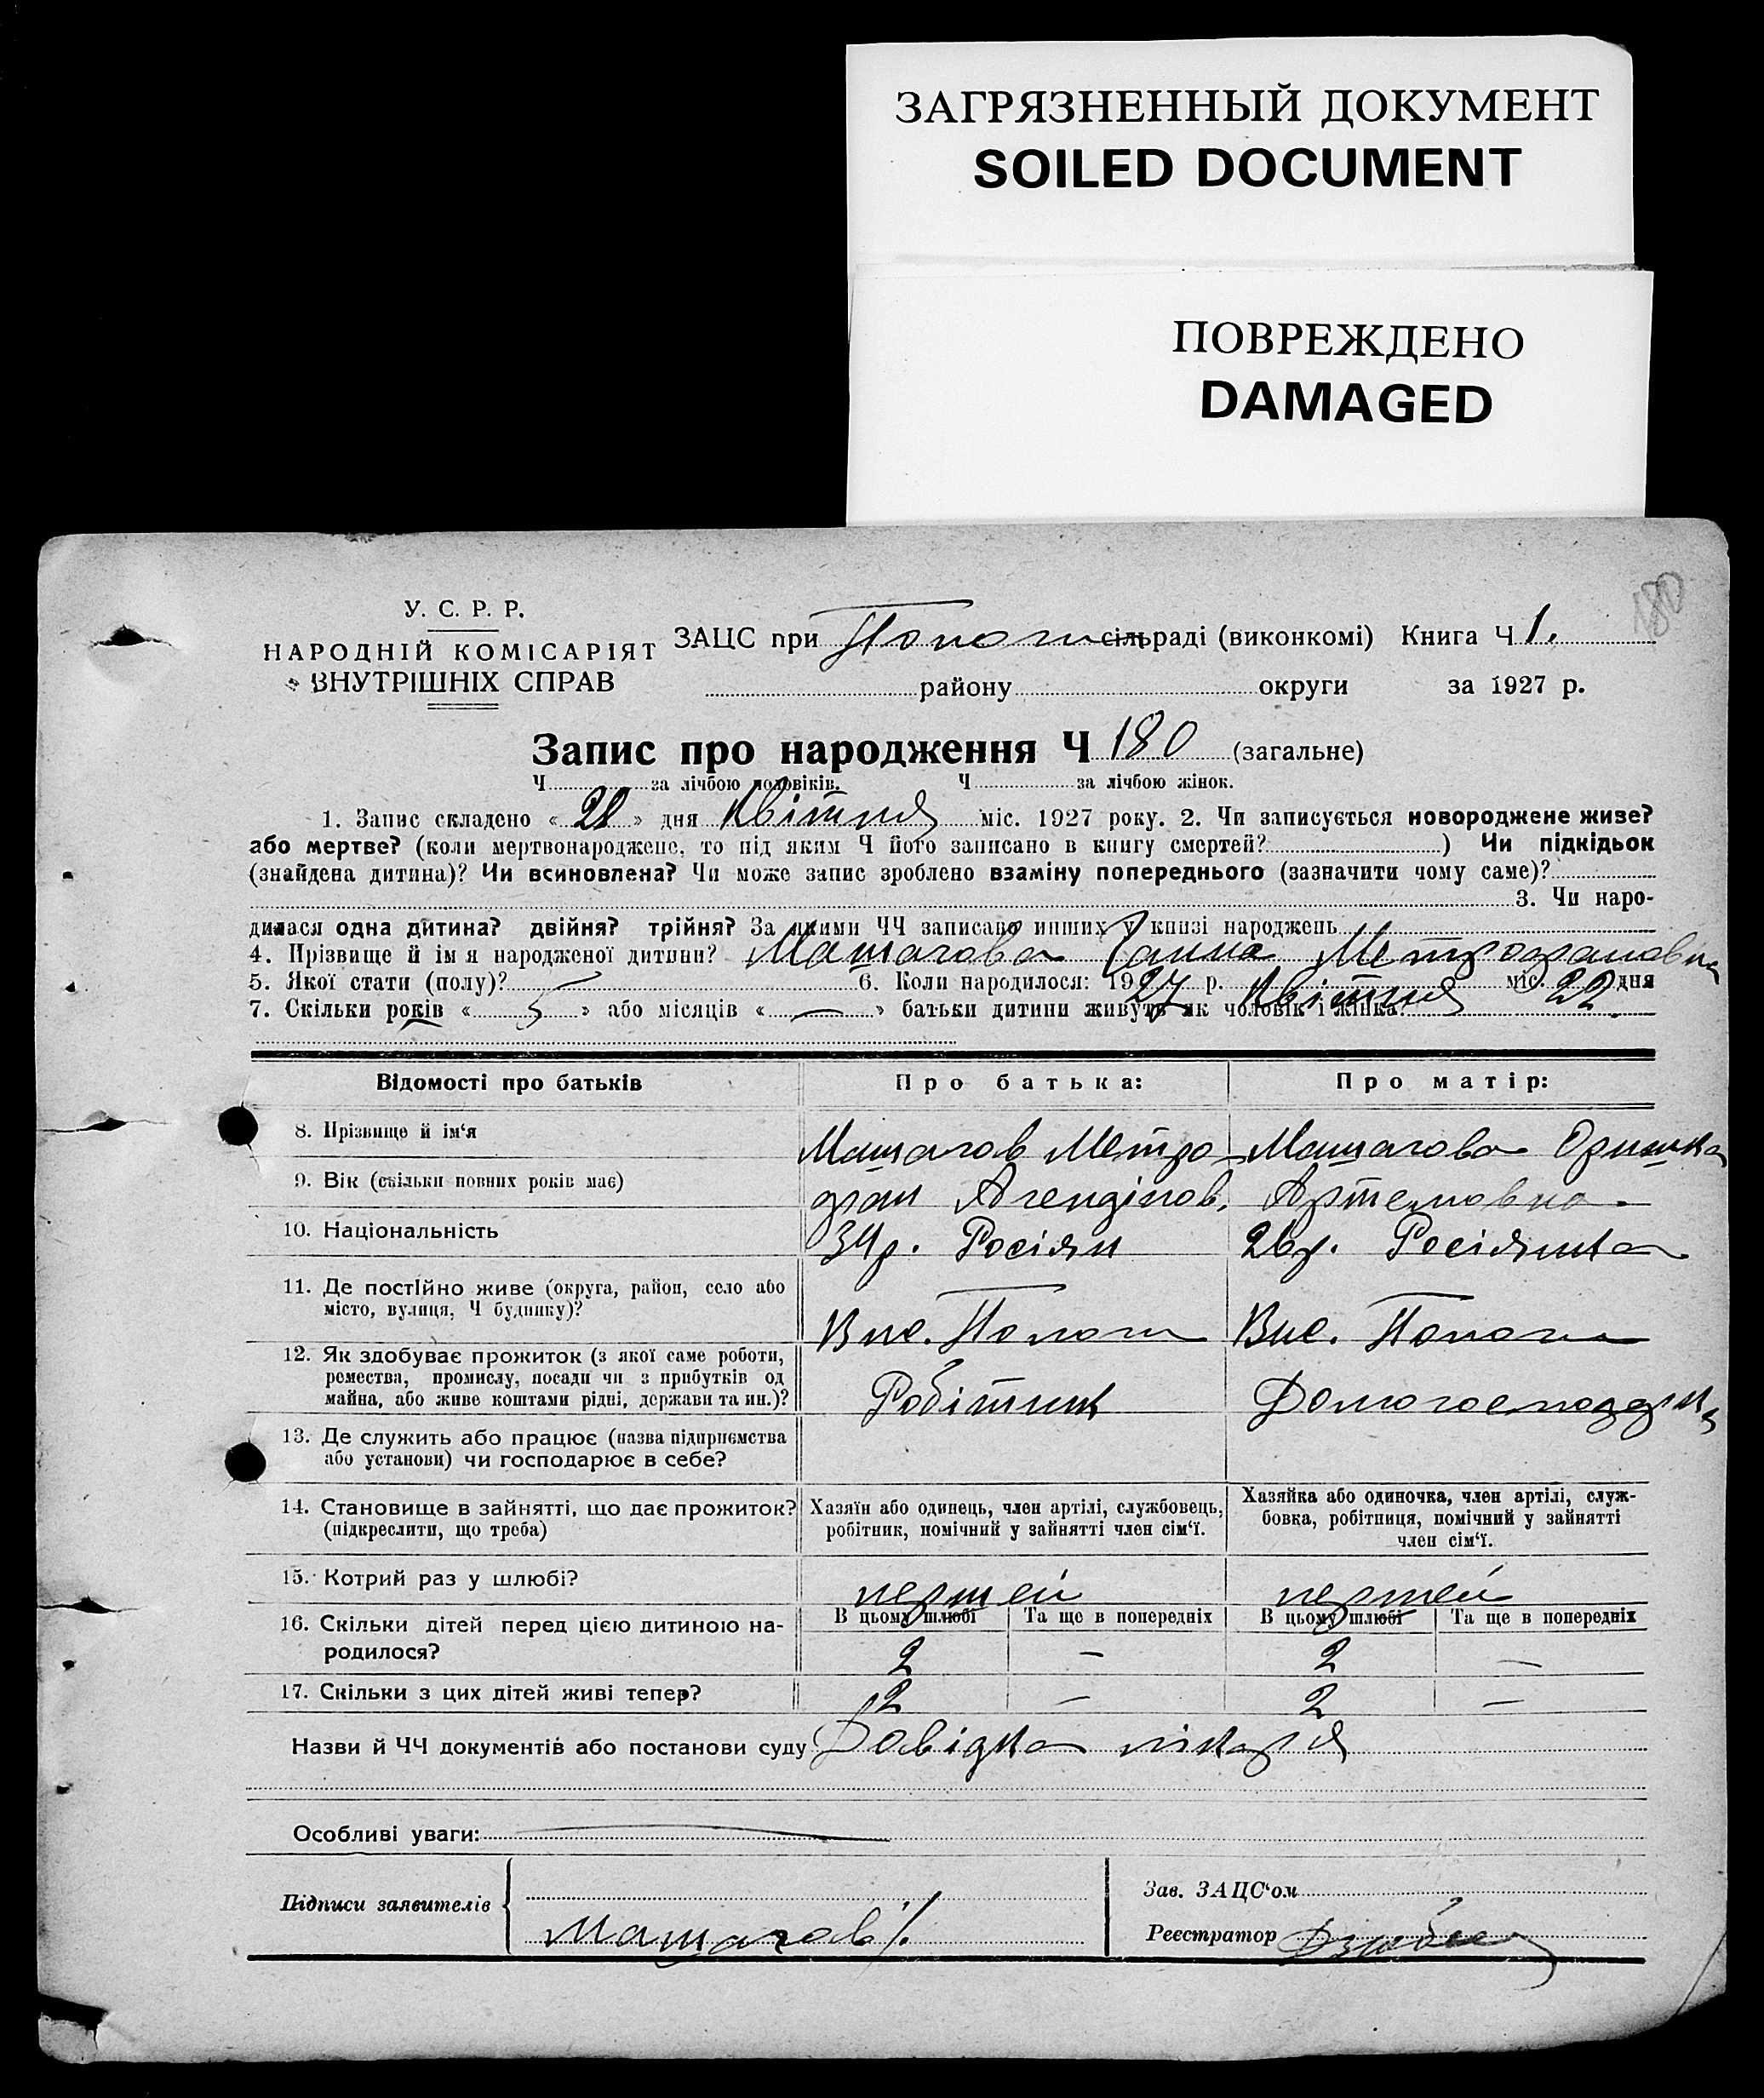 ЗАГРЯЗНЕННЫЙ ДОКУМЕНТ
SOILED DOCUMENT
ПОВРЕЖДЕНО
DAMAGED
180
У. С. Р. Р.
НАРОДНІЙ КОМІСАРІЯТ
ВНУТРІШНІХ СПРАВ
ЗАЦС при Пологи сільраді (виконкомі) Книга Ч 1.
району округи за 1927 р.
Запис про народження Ч 180 (загальне)
Ч за лічбою половіків. Ч за лічбою жінок.
1. Запис складено « 28 » дня Квітня міс. 1927 року. 2. Чи записується новороджене живе?
або мертве? (коли мертвонароджене, то під яким Ч його записано в книгу смертей? ) Чи підкідьок
(знайдена дитина)? Чи всиновлена? Чи може запис зроблено взаміну попереднього (зазначити чому саме)?
3. Чи наро-
дилася одна дитина? двійня? трійня? За якими ЧЧ записано инших у книзі народжень
4. Прізвище й ім я народженої дитини? Машагова Ганна Метрофановна
5. Якої стати (полу)? 6. Коли народилося: 1927 р. Квітня міс. 22 дня
7. Скільки років « 5 » або місяців « — » батьки дитини живуть як чоловік і жінка?
Відомості про батьків
Про батька:
Про матір:
8. Прізвище й ім‘я
Машагов Метро-
Машагова Оришка
9. Вік (скільки повних років має)
фан
Артемовна.
10. Національність
34р. Росіян
26р. Росіянка
11. Де постІйно живе (округа, район, село або
місто, вулиця, Ч будинку)?
Вис. Пологи
Вис. Пологи
12. Як здобуває прожиток (з якої саме роботи,
ремества, промислу, посади чи з прибутків од
майна, або живе коштами рідні, держави та ин.)?
Робітник
13. Де служить або працює (назва підприємства
або установи) чи господарює в себе?
14. Становище в зайнятті, що дає прожиток?
(підкреслити, що треба)
Хазяїн або одинець, член артілі, службовець,
робітник, помічний у зайнятті член сім‘ї.
Хазяйка або одиночка, член артілі, служ-
бовка, робітниця, помічний у зайнятті
член сім‘ї.
15. Котрий раз у шлюбі?
першей
першей
16. Скільки дітей перед цією дитиною на-
родилося?
В цьому шлюбі Та ще в попередніх В цьому шлюбі Та ще в попередніх
2 — 2 —
17. Скільки з цих дітей живі тепер?
2 — 2 —
Назви й ЧЧ документів або постанови суду Довідка лікаря
Особливі уваги:
Підписи заявителів
Машагов
Зав. ЗАЦС‘ом
Реєстратор